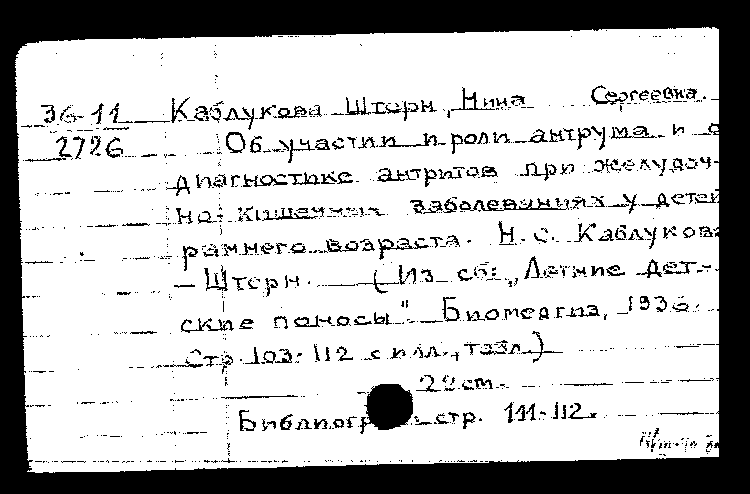 36-11 Каблукова Штерн, Нина Сергеевна.
2726 Об участии и роли антрума и о
диагностике антритов при желудоч-
но-кишечных заболеваниях у детей
раннего возраста. Н. С. Каблукова
- Штерн. (Из сб: "Летние дет-
ские поносы". Биомедгиз, 1936.
Стр. 103-112 с илл., табл.)
22 cm.
Библиогр стр. 111-112.